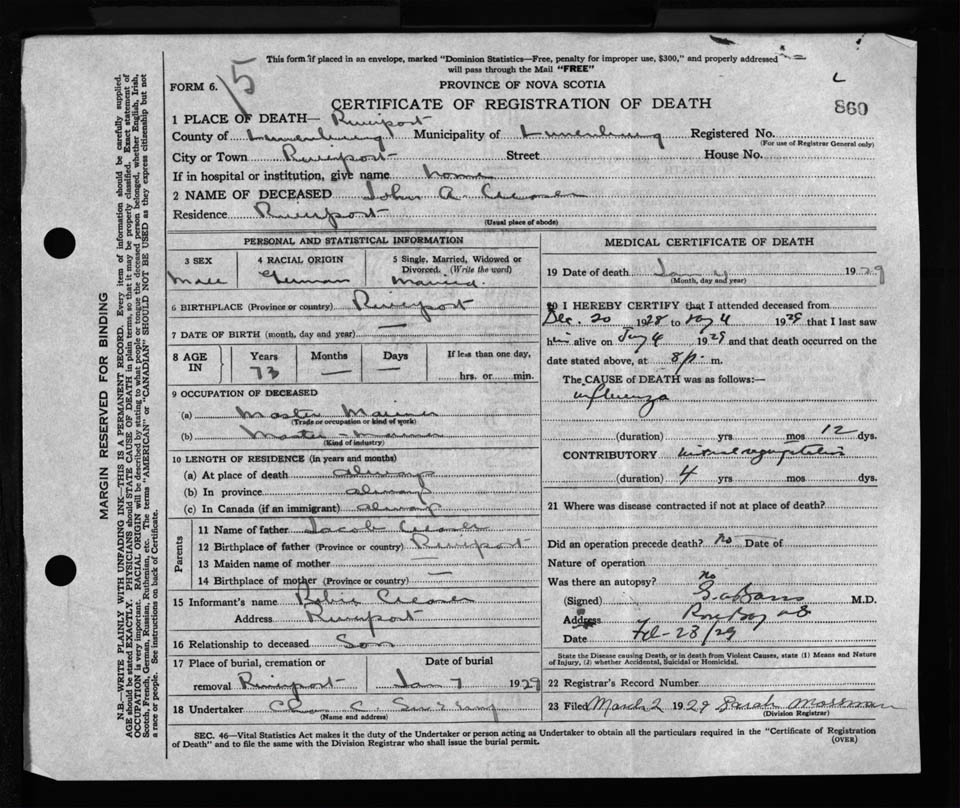 This form if placed in an envelope, marked "Dominion Statistics—Free, penalty for improper use, $300," and properly addressed
will pass through the Mail "FREE"
FORM 6. 15
PROVINCE OF NOVA SCOTIA
CERTIFICATE OF REGISTRATION OF DEATH 860
1 PLACE OF DEATH— Riverport
County of Lunenburg Municipality of Lunenburg Registered No.
(For use of Registrar General only)
City or Town Riverport Street House No.
If in hospital or institution, give name home
2 NAME OF DECEASED John A. Creaser
Residence Riverport
(Usual place of abode)
PERSONAL AND STATISTICAL INFORMATION
3 SEX 4 RACIAL ORIGIN 5 Single, Married, Widowed or
Divorced. (Write the word)
Male German Married.
6 BIRTHPLACE (Province or country) Riverport
7 DATE OF BIRTH (month, day and year) —
8 AGE IN Years Months Days If less than one day,
73 — — hrs. or min.
9 OCCUPATION OF DECEASED
(a) Master Mariner
(Trade or occupation or kind of work)
(b) Master - Mariner
(Kind of industry)
10 LENGTH OF RESIDENCE (in years and months)
(a) At place of death always
(b) In province always
(c) In Canada (if an immigrant) always
Parents
11 Name of father Jacob Creaser
12 Birthplace of father (Province or country) Riverport
13 Maiden name of mother
14 Birthplace of mother (Province or country) —
15 Informant's name Creaser
Address Riverport
16 Relationship to deceased Son
17 Place of burial, cremation or Date of burial
removal Riverport Jan 7 1929
18 Undertaker C.
(Name and address)
MEDICAL CERTIFICATE OF DEATH
19 Date of death Jan 4 1929
(Month, day and year)
20 I HEREBY CERTIFY that I attended deceased from
Dec. 20 1928 to Jany 4 1929 that I last saw
him alive on Jany 4 1929 and that death occurred on the
date stated above, at 8 p. m.
The CAUSE OF DEATH was as follows:—
influenza
(duration) yrs mos 12 dys.
CONTRIBUTORY mitral regurgitation
(duration) 4 yrs. mos dys.
21 Where was disease contracted if not at place of death?
Did an operation precede death? no Date of
Nature of operation
Was there an autopsy? no
(Signed) M.D.
Address Rose Bay N S
Date Feb - 23/29
State the Disease causing Death, or in death from Violent Causes, state (1) Means and Nature
of Injury, (2) whether Accidental, Suicidal or Homicidal.
22 Registrar's Record Number
23 Filed March 2 1929 Sarah
(Division Registrar)
SEC. 46—Vital Statistics Act makes it the duty of the Undertaker or person acting as Undertaker to obtain all the particulars required in the "Certificate of Registration
of Death" and to file the same with the Division Registrar who shall issue the burial permit. (OVER)
MARGIN RESERVED FOR BINDING
N.B.—WRITE PLAINLY WITH UNFADING INK—THIS IS A PERMANENT RECORD. Every item of information should be carefully supplied.
AGE should be stated EXACTLY. PHYSICIANS should STATE CAUSE OF DEATH in plain terms, so that it may be properly classified. Exact statement of
OCCUPATION is very important. RACIAL ORIGIN will be described by stating to what people or tongue the deceased person belonged, whether English, Irish,
Scotch, French, German, Russian, Ruthenian, etc. The terms "AMERICAN" or "CANADIAN" SHOULD NOT BE USED as they express citizenship but not
a race or people. See instructions on back of Certificate.